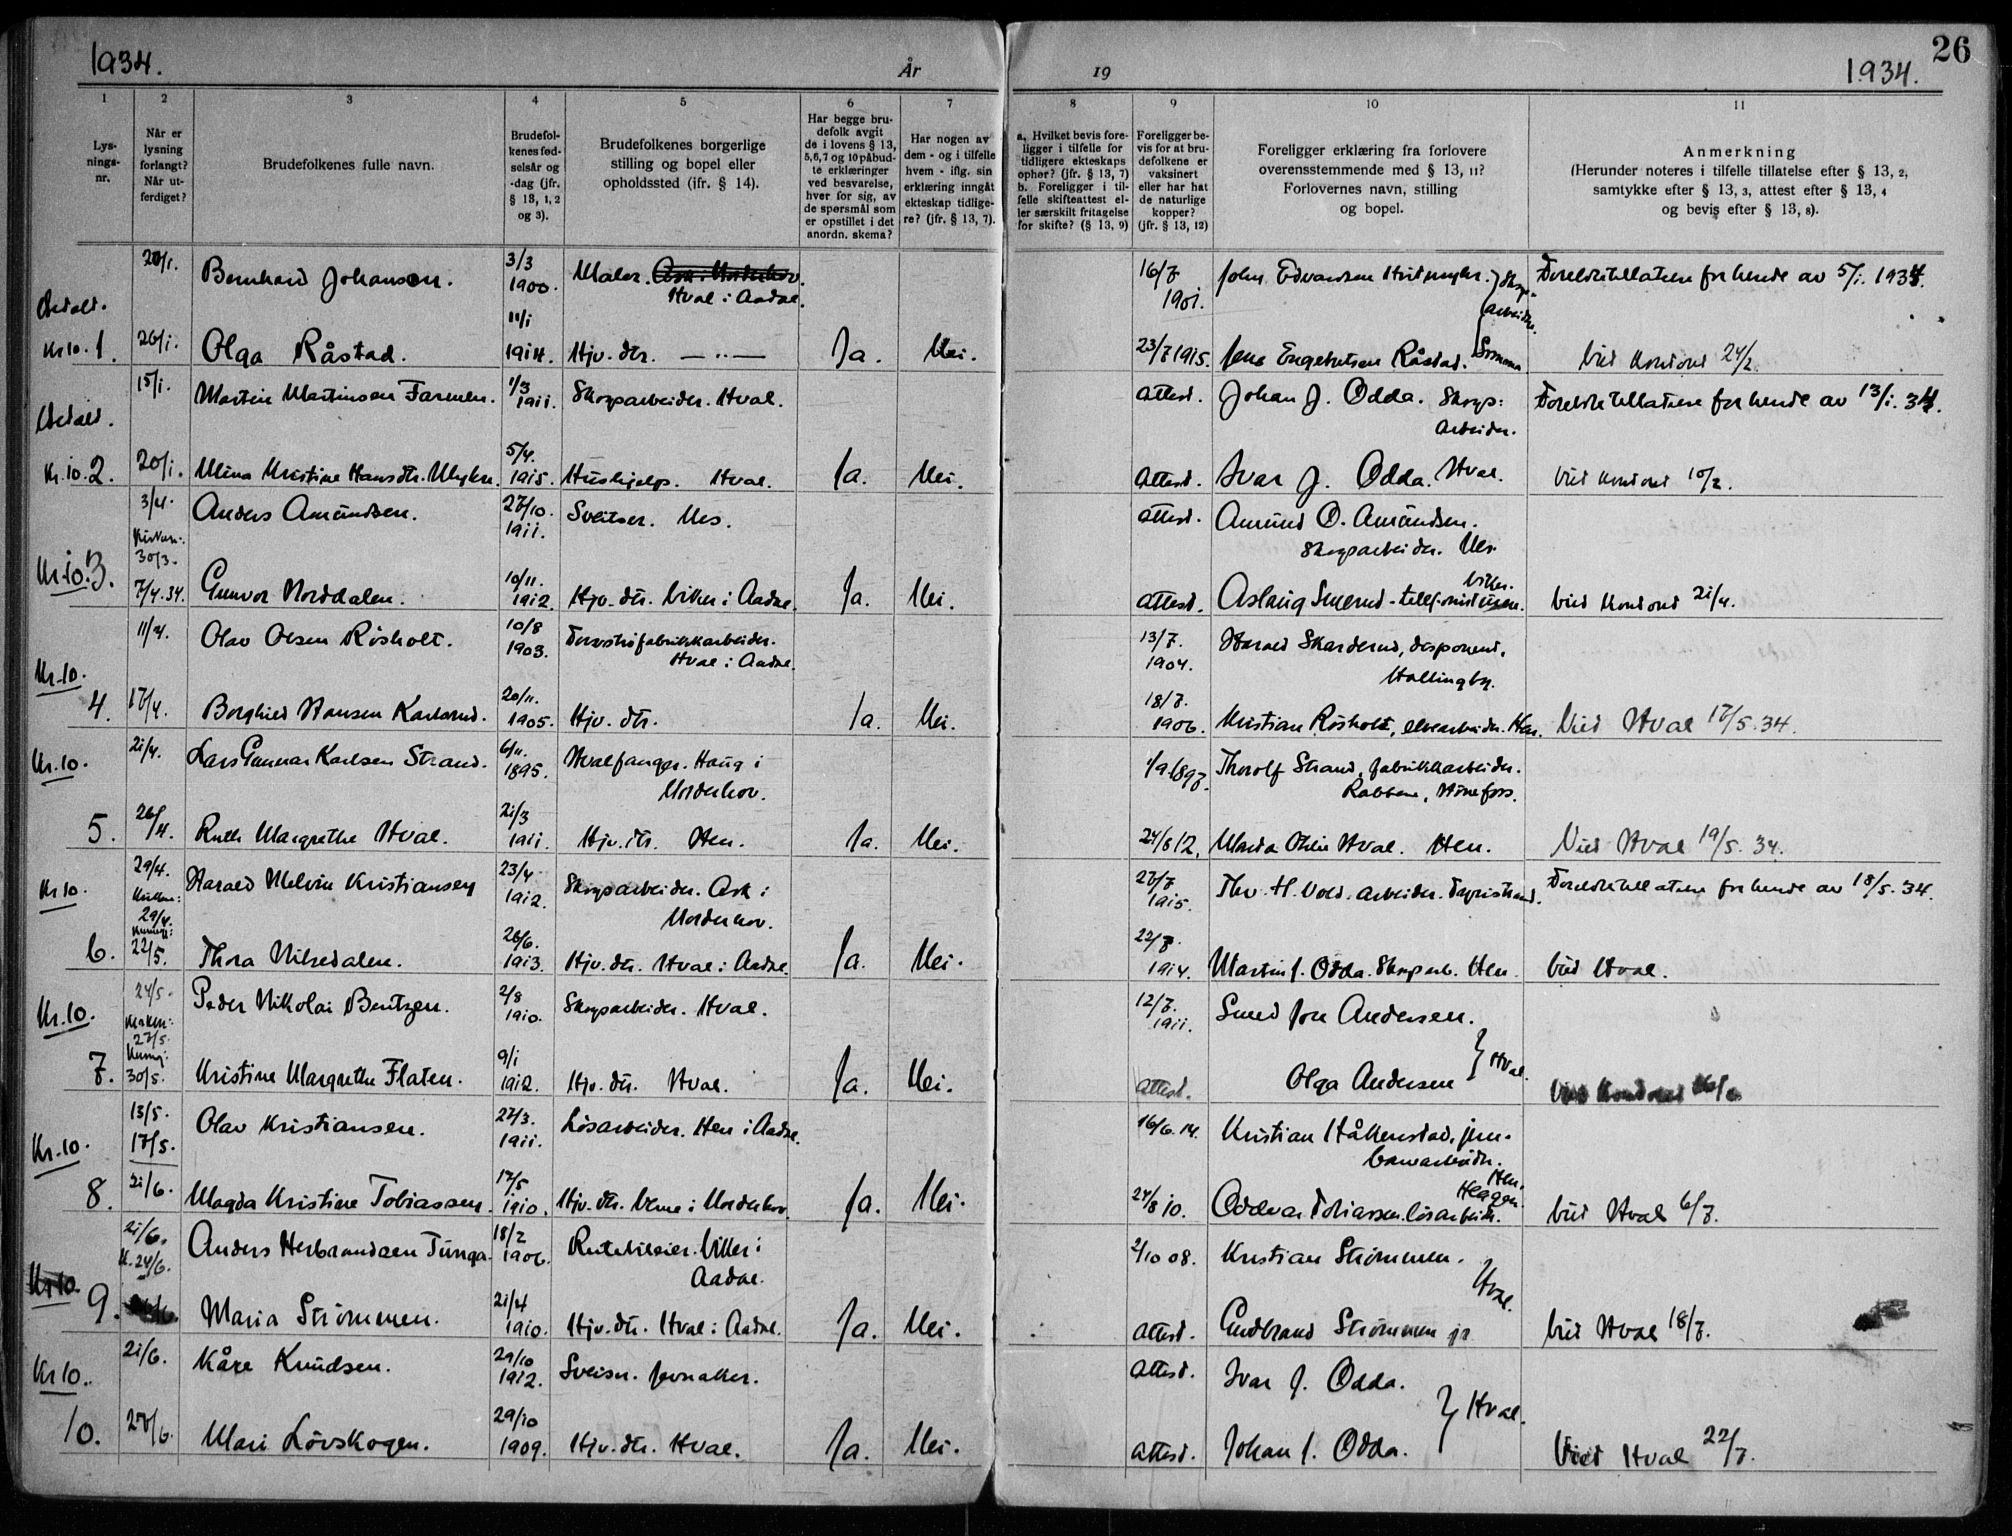 1934.
År
19
1934.
26
1
2
3
4
5
6
7
8
9
10
11
Lys-
nings-
nr.
Når er
lysning
forlangt?
Når ut-
ferdiget?
Brudefolkenes fulle navn.
Brudefol-
kenes fød-
selsår og
-dag (jfr.
§ 13, 1, 2
og 3).
Brudefolkenes borgerlige
stilling og bopel eller
opholdssted (ifr. § 14).
Har begge bru-
defolk avgit
de i lovens § 13,
5, 6, 7 og 10 påbud-
te erklæringer
ved besvarelse,
hver for sig, av
de spørsmål som
er opstillet i det
anordn. skema?
Har nogen av
dem - og i tilfelle
hvem - iflg. sin
erklæring inngåt
ekteskap tidlige-
re? (jfr. § 13, 7).
a. Hvilket bevis fore-
ligger i tilfelle for
tidligere ekteskaps
ophør? (jfr. § 13, 7)
b. Foreligger i til-
felle skifteattest el-
ler særskilt fritagelse
for skifte? (§ 13, 9)
Foreligger be-
vis for at bru-
defolkene er
vaksinert
eller har hat
de naturlige
kopper?
(jfr. § 13, 12)
Foreligger erklæring fra forlovere
overensstemmende med § 13, 11?
Forlovernes navn, stilling
og bopel.
Anmerkning
(Herunder noteres i tilfelle tillatelse efter § 13, 2,
samtykke efter § 13, 3, attest efter § 13, 4
og bevis efter § 13, 8).
Betalt.
20/1. Bernhard Johansen. 3/3 1900. Maler.
Hval i Aadal.
16/7 1901. John Edvardsen
Skogs-
arbeider.
Foreldretillatelse for hende av 5/1. 1934.
Kr 10. 1. 26/1. Olga Råstad. 11/1 1914. Hjv. dtr. — ·· — Ja. Nei. 23/7 1915. Jens Engebretsen Råstad. Somma Viet kontoret 24/2.
Betalt.
15/1. Martin Martinsen Farmen. 1/3 1911. Skogsarbeider. Hval. attest. Johan J. Odda. Skogs-
arbeider.
Foreldretillatelse for hende av 13/1. 34.
Kr. 10. 2. 20/1. Mina Kristine Hansdtr. 5/4. 1915. Hushjelp. Hval. Ja. Nei. attest. Ivar J. Odda. Hval. Viet kontoret 10/2.
3/4. Anders Amundsen. 27/10. 1911. Sveitser. Nes. attest. Amund O. Amundsen.
Skogsarbeider. Nes.
Kirken:
30/3.
Kr. 10. 3. 7/4. 34. Gunvor Norddalen. 10/11. 1912. Hjv. dtr. Viker i Aadal. Ja. Nei. attest. Aslaug Smerud - telefonistinne. Viker. Viet kontoret 21/4.
11/4. Olav Olsen Risholt. 10/8 1903. Torvstrøfabrikkarbeider.
Hval i Aadal.
13/7. 1904. Harald Skarderud, disponent,
Hallingby.
Kr. 10
4. 17/4. Borghild Hansen Karlsrud. 20/11. 1905. Hjv. dtr. Ja. Nei. 18/7. 1906. Kristian Risholt, elvearbeider. Hen. Viet Hval 17/5. 34.
Kr. 10. 21/4. Lars Gunnar Karlsen Strand. 6/11. 1895. Hvalfanger. Haug i
Norderhov.
1/9 1897. Thorolf Strand, fabrikkarbeider.
Rabbene, Hönefoss.
5. 26/4. Ruth Margrethe Hval. 21/3 1911. Hjv. dtr. Hen. Ja. Nei. 24/8 12. Marta Othilie Hval. Hen. Viet Hval 19/5. 34.
Kr 10. 29/4. Harald Melvin Kristiansen 23/4 1912. Skogsarbeider. Ask i
Norderhov.
27/7 1915. Thv. H. Vold. arbeider. Tyristrand. Foreldretillatelse for hende av 18/5. 34.
Kirken:
29/4.
Kunng.:
6. 22/5. Thora Nilsedalen. 26/6. 1913. Hjv. dtr. Hval i Aadal. Ja. Nei. 22/7. 1914. Martin J. Odda. Skogsarb. Hen. Viet Hval.
Kr. 10. 24/5. Peder Nikolai Bentzen. 2/8 1910. Skogsarbeider. Hval. 12/7. 1911. Smed Jon Andersen.
Kirken:
27/5.
Kunng:
Hval.
7. 30/5. Kristine Margrethe Flaten. 9/1 1912. Hjv. dtr. Hval. Ja. Nei. attest. Olga Andersen Viet kontoret
Kr. 10. 13/5. 17/5. Olav Kristiansen. 27/3. 1911. Lösarbeider. Hen i Aadal. 16/6. 14. Kristian Håkenstad, jern-
banearbeider.
Hen.
8. 21/6. Magda Kristine Tobiassen. 17/5. 1910. Hjv. dtr. Veme i Norderhov. Ja. Nei. 24/8 10. Oddvar Tobiassen. lösarbeider. Heggen. Viet Hval 6/7.
Kr 10. 21/6. K. 24/6. Anders Herbrandsen Tunga. 18/2 1906. Rutebileier. Viker i
Aadal.
2/10 08. Kristian Strömmen.
Hval.
9. Maria Strömmen. 21/4 1910. Hjv. dtr. Hval i Aadal. Ja. Nei. attest. Gudbrand Strömmen jr Viet Hval 18/7.
Kr 10. 21/6. Kåre Knudsen. 29/10 1912. Sveiser. Jevnaker. attest. Ivar J. Odda.
Hval.
10. 27/6. Mari Lövskogen. 29/10 1909. Hjv. dtr. Hval. Ja. Nei. attest. Johan J. Odda. Viet Hval 22/7.